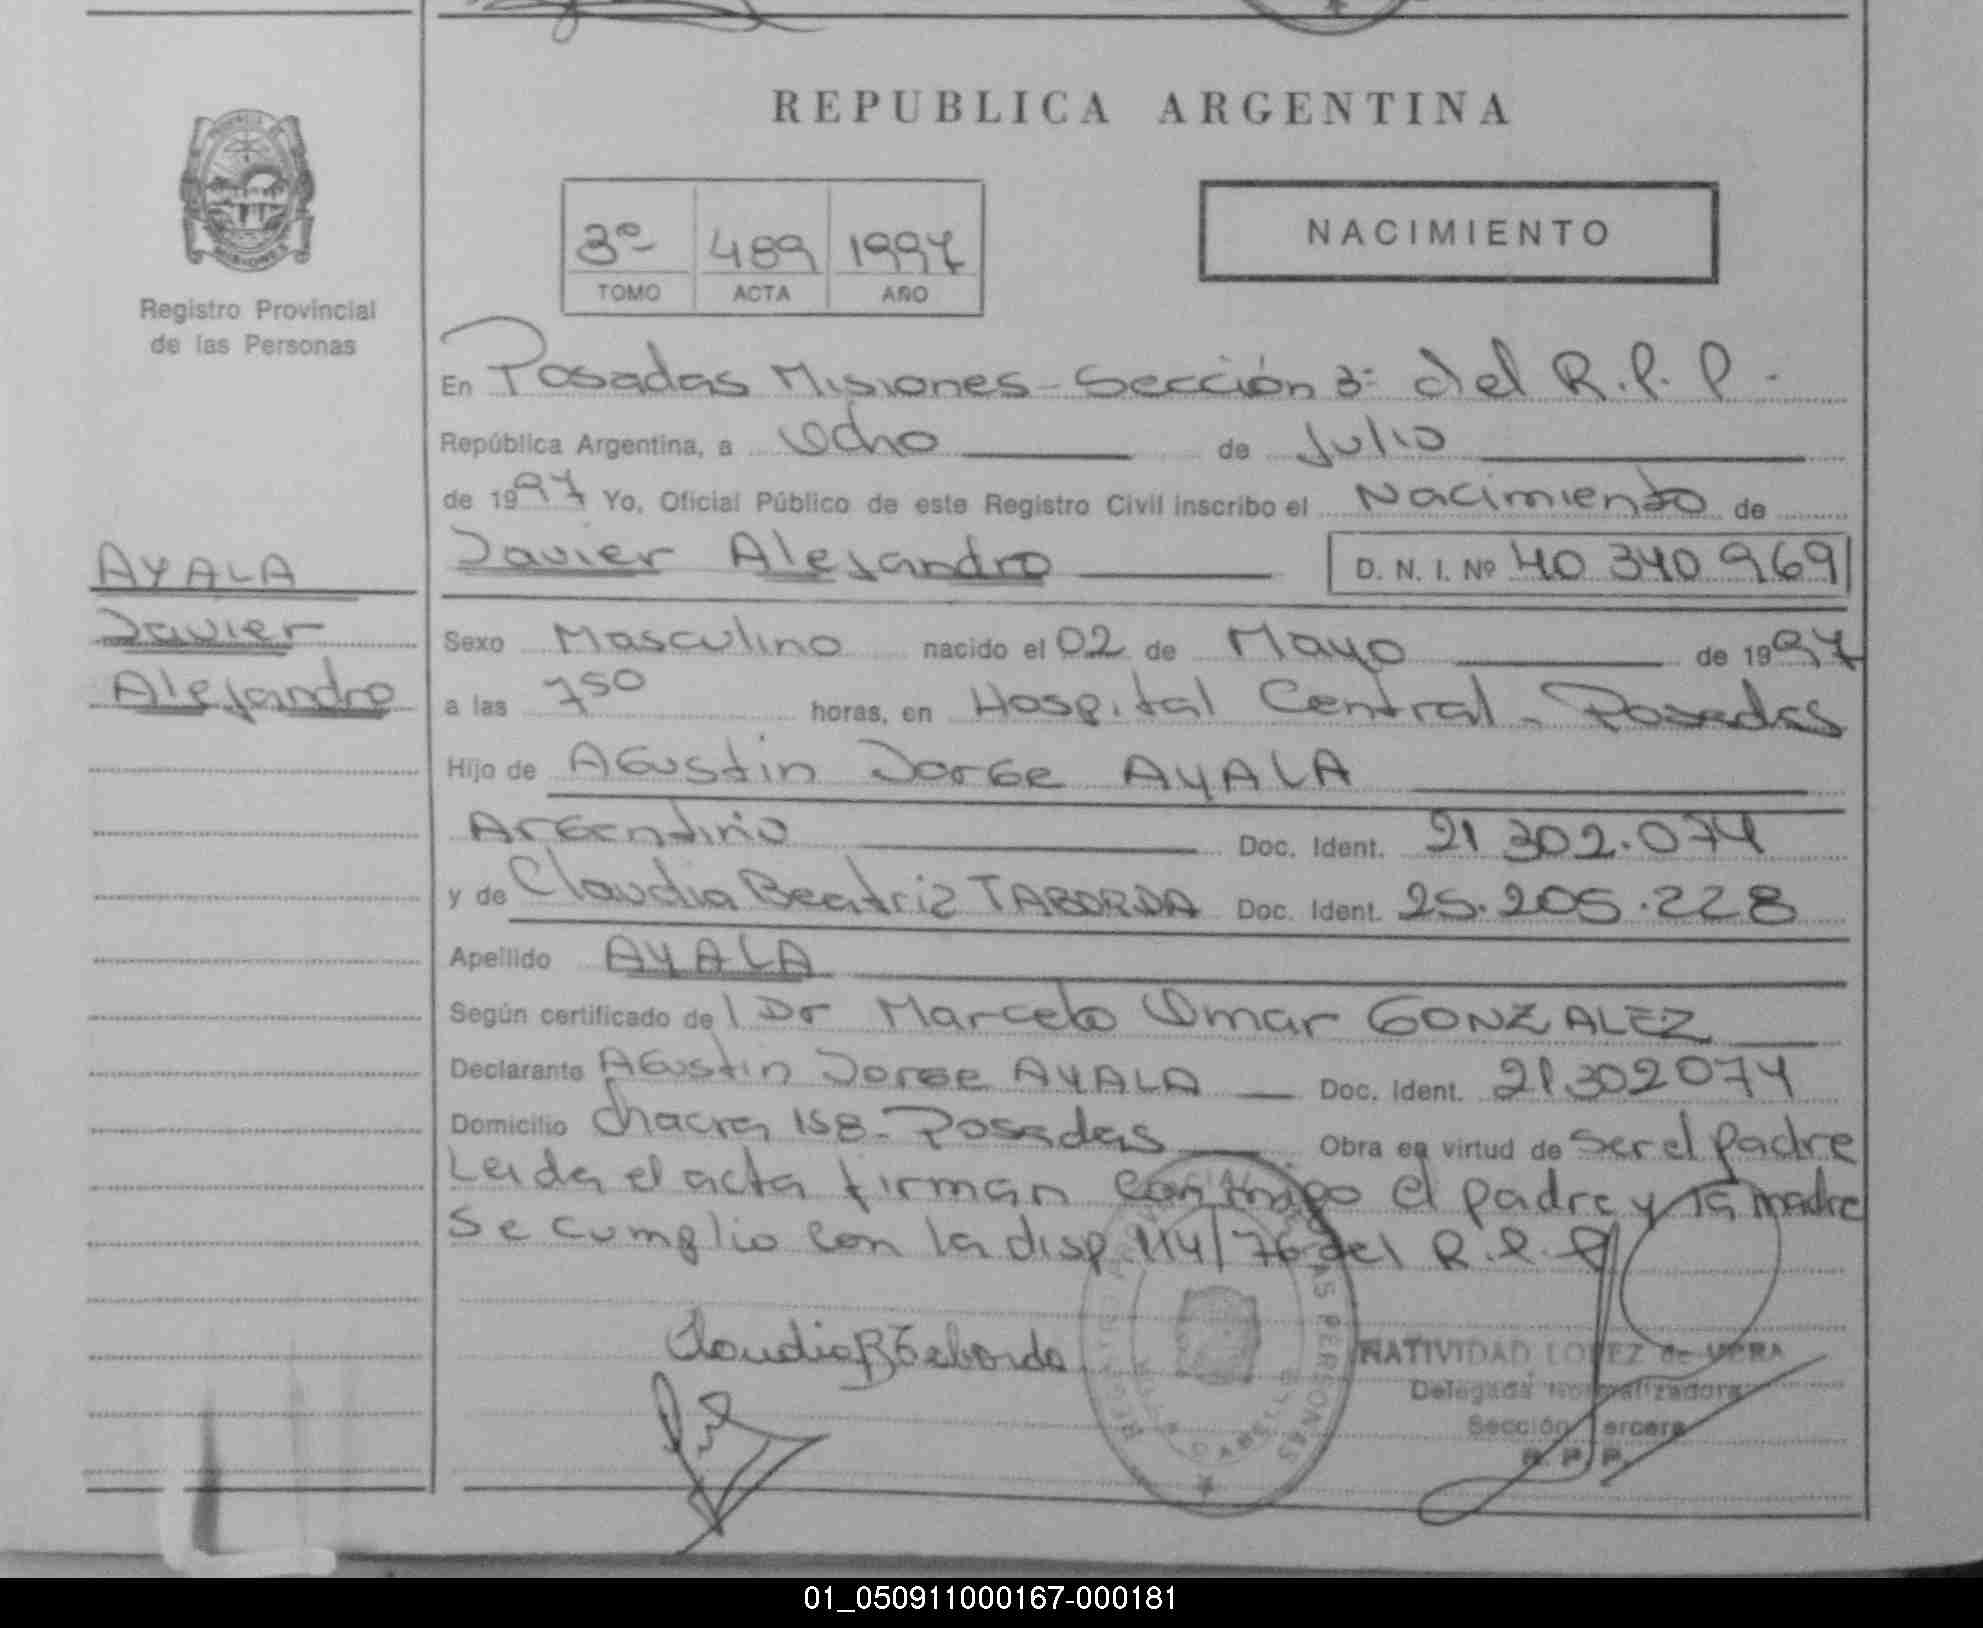 REPUBLICA ARGENTINA
NACIMIENTO
3º 489 1997
TOMO ACTA AÑO
Registro Provincial
de las Personas
En Posadas Misiones - Sección 3ª del R.P.P.-
República Argentina, a Ocho de Julio
de 1997 Yo, Oficial Público de este Registro Civil inscribo el Nacimiento de
Javier Alejandro D. N. I. Nº 40 340 969
AYALA
Javier
Alejandro
Sexo Masculino nacido el 02 de Mayo de 1997
a las 750 horas, en Hospital Central - Posadas
Hijo de Agustin Jorge AYALA
Argentino Doc. Ident. 21 302.074
y de Claudia Beatriz TABORDA Doc. Ident. 25.205.228
Apellido AYALA
Según certificado del Dr Marcelo Omar GONZALEZ
Declarante Agustin Jorge AYALA Doc. Ident. 21.302074
Domicilio Chacra 158 - Posadas Obra en virtud de ser el padre
Leida el acta firman conmigo el padre y la madre
Se cumplio con la disp. 114/76 del R.P.P
Claudia B Taborda
NATIVIDAD LOPEZ de VERA
Delegada Normalizadora
Sección Tercera
R. P. P.
LAS PERSONAS
01_050911000167-000181